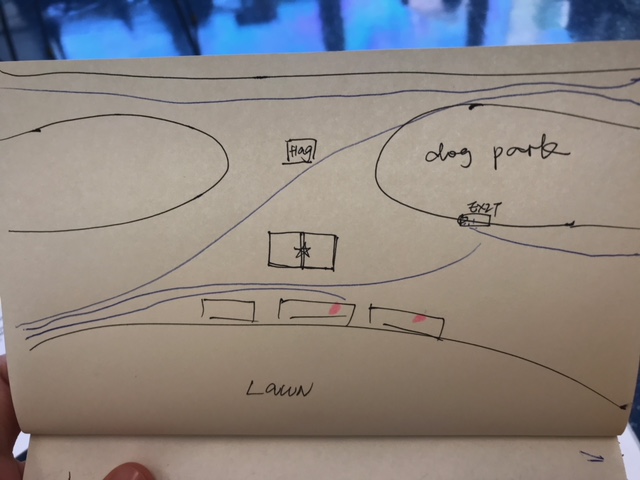 Flag
dog park
EXIT
LAWN